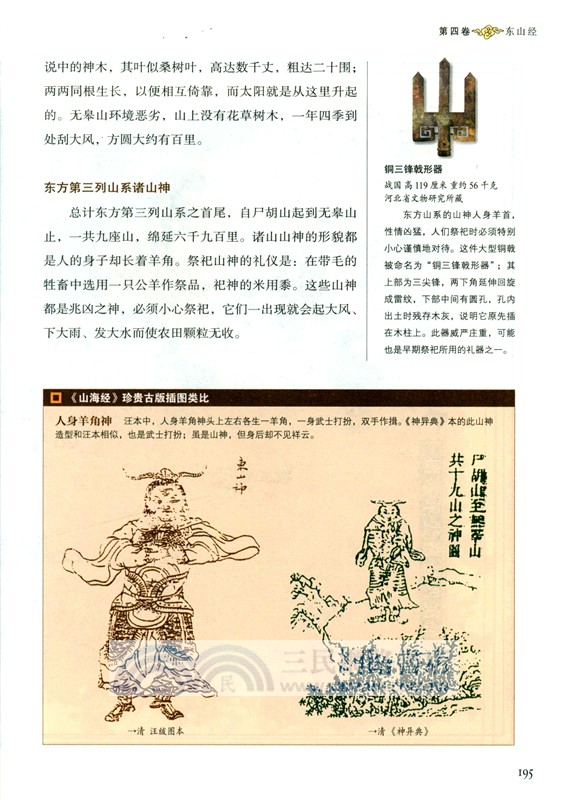 第四卷 东山经
说中的神木，其叶似桑树叶，高达数千丈，粗达二十围；
两两同根生长，以便相互倚靠，而太阳就是从这里升起
的。无皋山环境恶劣，山上没有花草树木，一年四季到
处刮大风，方圆大约有百里。
东方第三列山系诸山神
总计东方第三列山系之首尾，自尸胡山起到无皋山
止，一共九座山，绵延六千九百里。诸山山神的形貌都
是人的身子却长着羊角。祭祀山神的礼仪是：在带毛的
牲畜中选用一只公羊作祭品，祀神的米用黍。这些山神
都是兆凶之神，必须小心祭祀，它们一出现就会起大风、
下大雨、发大水而使农田颗粒无收。
铜三锋戟形器
战国 高119厘米 重约56千克
河北省文物研究所藏
东方山系的山神人身羊首，
性情凶猛，人们祭祀时必须特别
小心谨慎地对待。这件大型铜戟
被命名为“铜三锋戟形器”；其
上部为三尖锋，两下角延伸回旋
成雷纹，下部中间有圆孔，孔内
出土时残存木灰，说明它原先插
在木柱上。此器威严庄重，可能
也是早期祭祀所用的礼器之一。
《山海经》珍贵古版插图类比
人身羊角神 汪本中，人身羊角神头上左右各生一羊角，一身武士打扮，双手作揖。《神异典》本的此山神
造型和汪本相似，也是武士打扮；虽是山神，但身后却不见祥云。
東山神
尸胡山至無皋山
共十九山之神圖
三民
民
www.
→清 汪绂图本
→清《神异典》
195